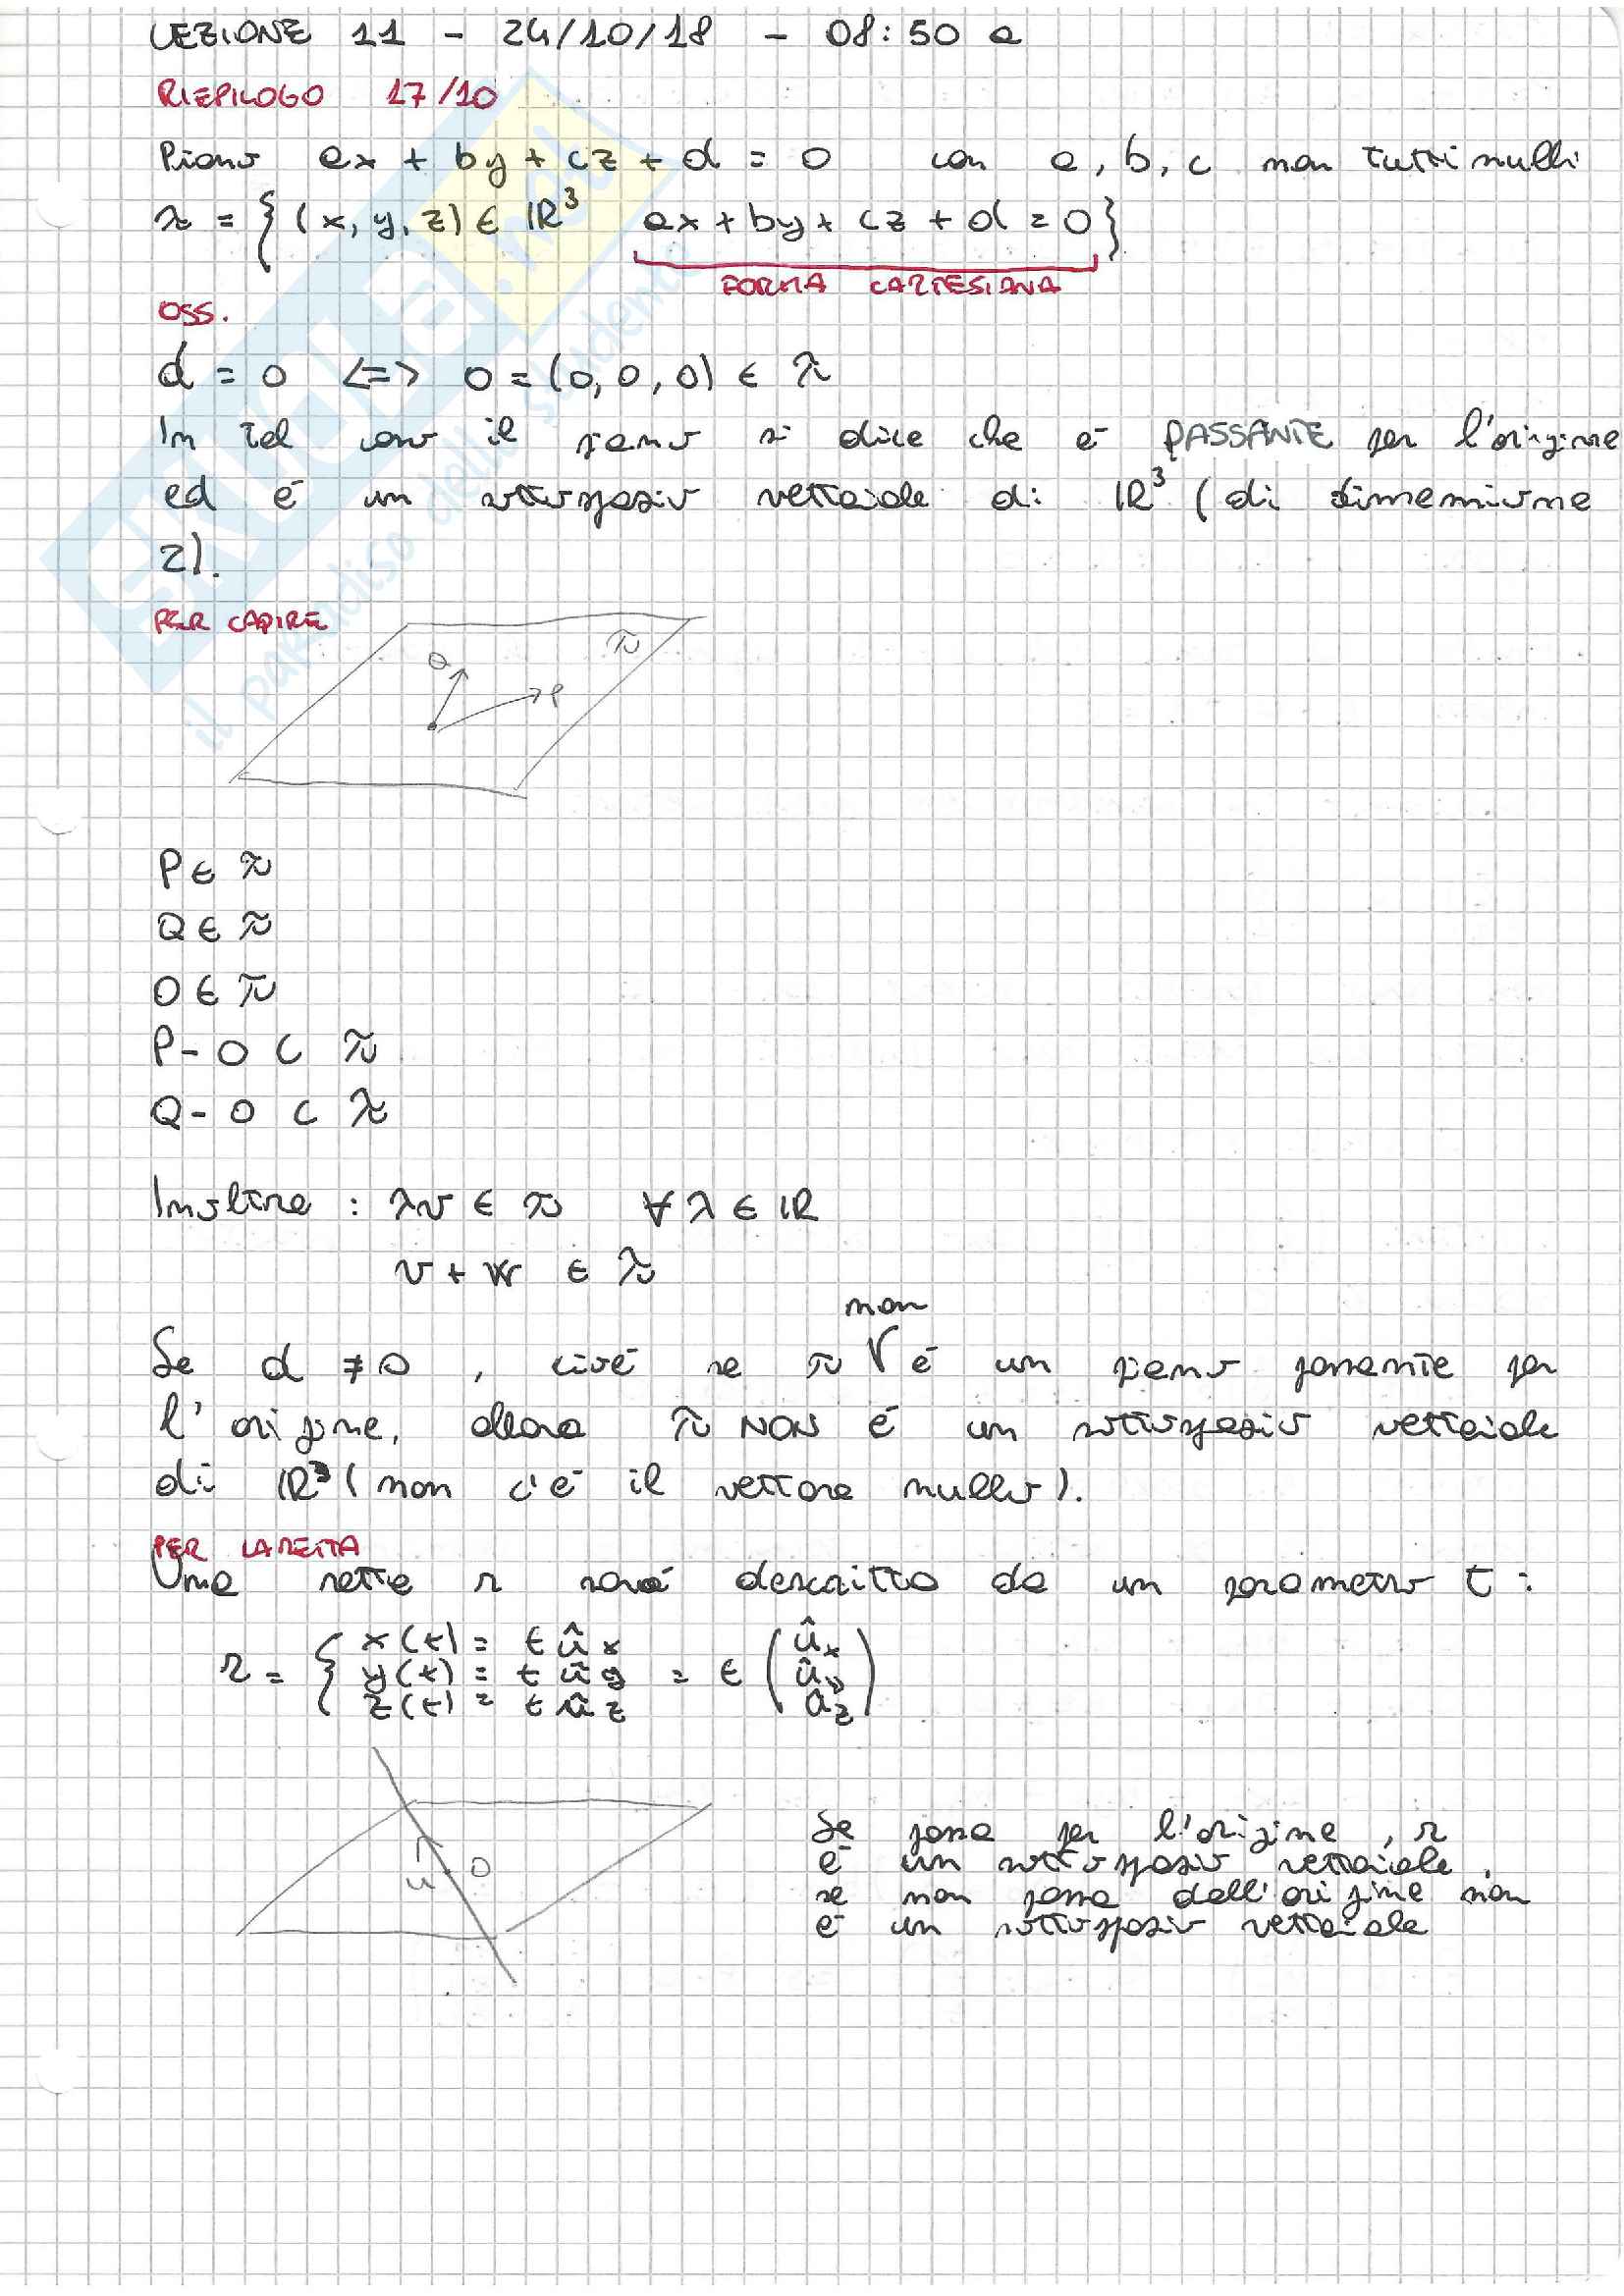 LEZIONE 11 - 24/10/18 - 08:50 a
RIEPILOGO 17/10
Piano ax + by + cz + d = 0 con a, b, c non tutti nulli
π = {(x, y, z) ∈ ℝ³ ax + by + cz + d = 0}
FORMA CARTESIANA
OSS.
d = 0 <=> 0 = (0, 0, 0) ∈ π
In tal caso il piano si dice che é PASSANTE per l'origine
ed é un sottospazio vettoriale di ℝ³ (di dimensione
2).
PER CAPIRE
π
Q
P
P ∈ π
Q ∈ π
O ∈ π
P - O ⊂ π
Q - O ⊂ π
Inoltre : λv ∈ π ∀ λ ∈ ℝ
v + w ∈ π
non
Se d ≠ 0 , cioé se π é un piano passante per
l'origine, allora π NON é un sottospazio vettoriale
di ℝ³ (non c'é il vettore nullo).
PER LA RETTA
Una retta r sará descritta da un parametro t :
r = { x(t) = t û x
y(t) = t û y = t (û x û y û z)
z(t) = t û z
u
O
Se passa per l'origine , r
é un sottospazio vettoriale ,
se non passa dall'origine non
é un sottospazio vettoriale
SKUOLA.net
il paradiso dello studente